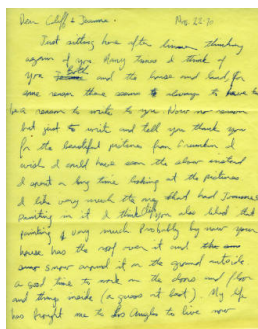 Dear Cliff & Joanne. Nov 22-70
Just sitting here after dinner thinking
again of you. Many times I think of
you Both and the house and land for
some reason there seems to always to have to
be a reason to write to you. Now no reason
but just to write and tell you thank you
for the beautiful pictures from I
wish I could have seen the show instead
I spent a long time looking at the pictures
I like very much the one that had Joannes
painting in it I think Cliff you also liked that
painting very much Probably by now your
house has the roof over it and
snow around it on the ground outside
a good time to work on the doors and floor
and things inside (a guess at best). My life
has brought me to Los Angeles to live now